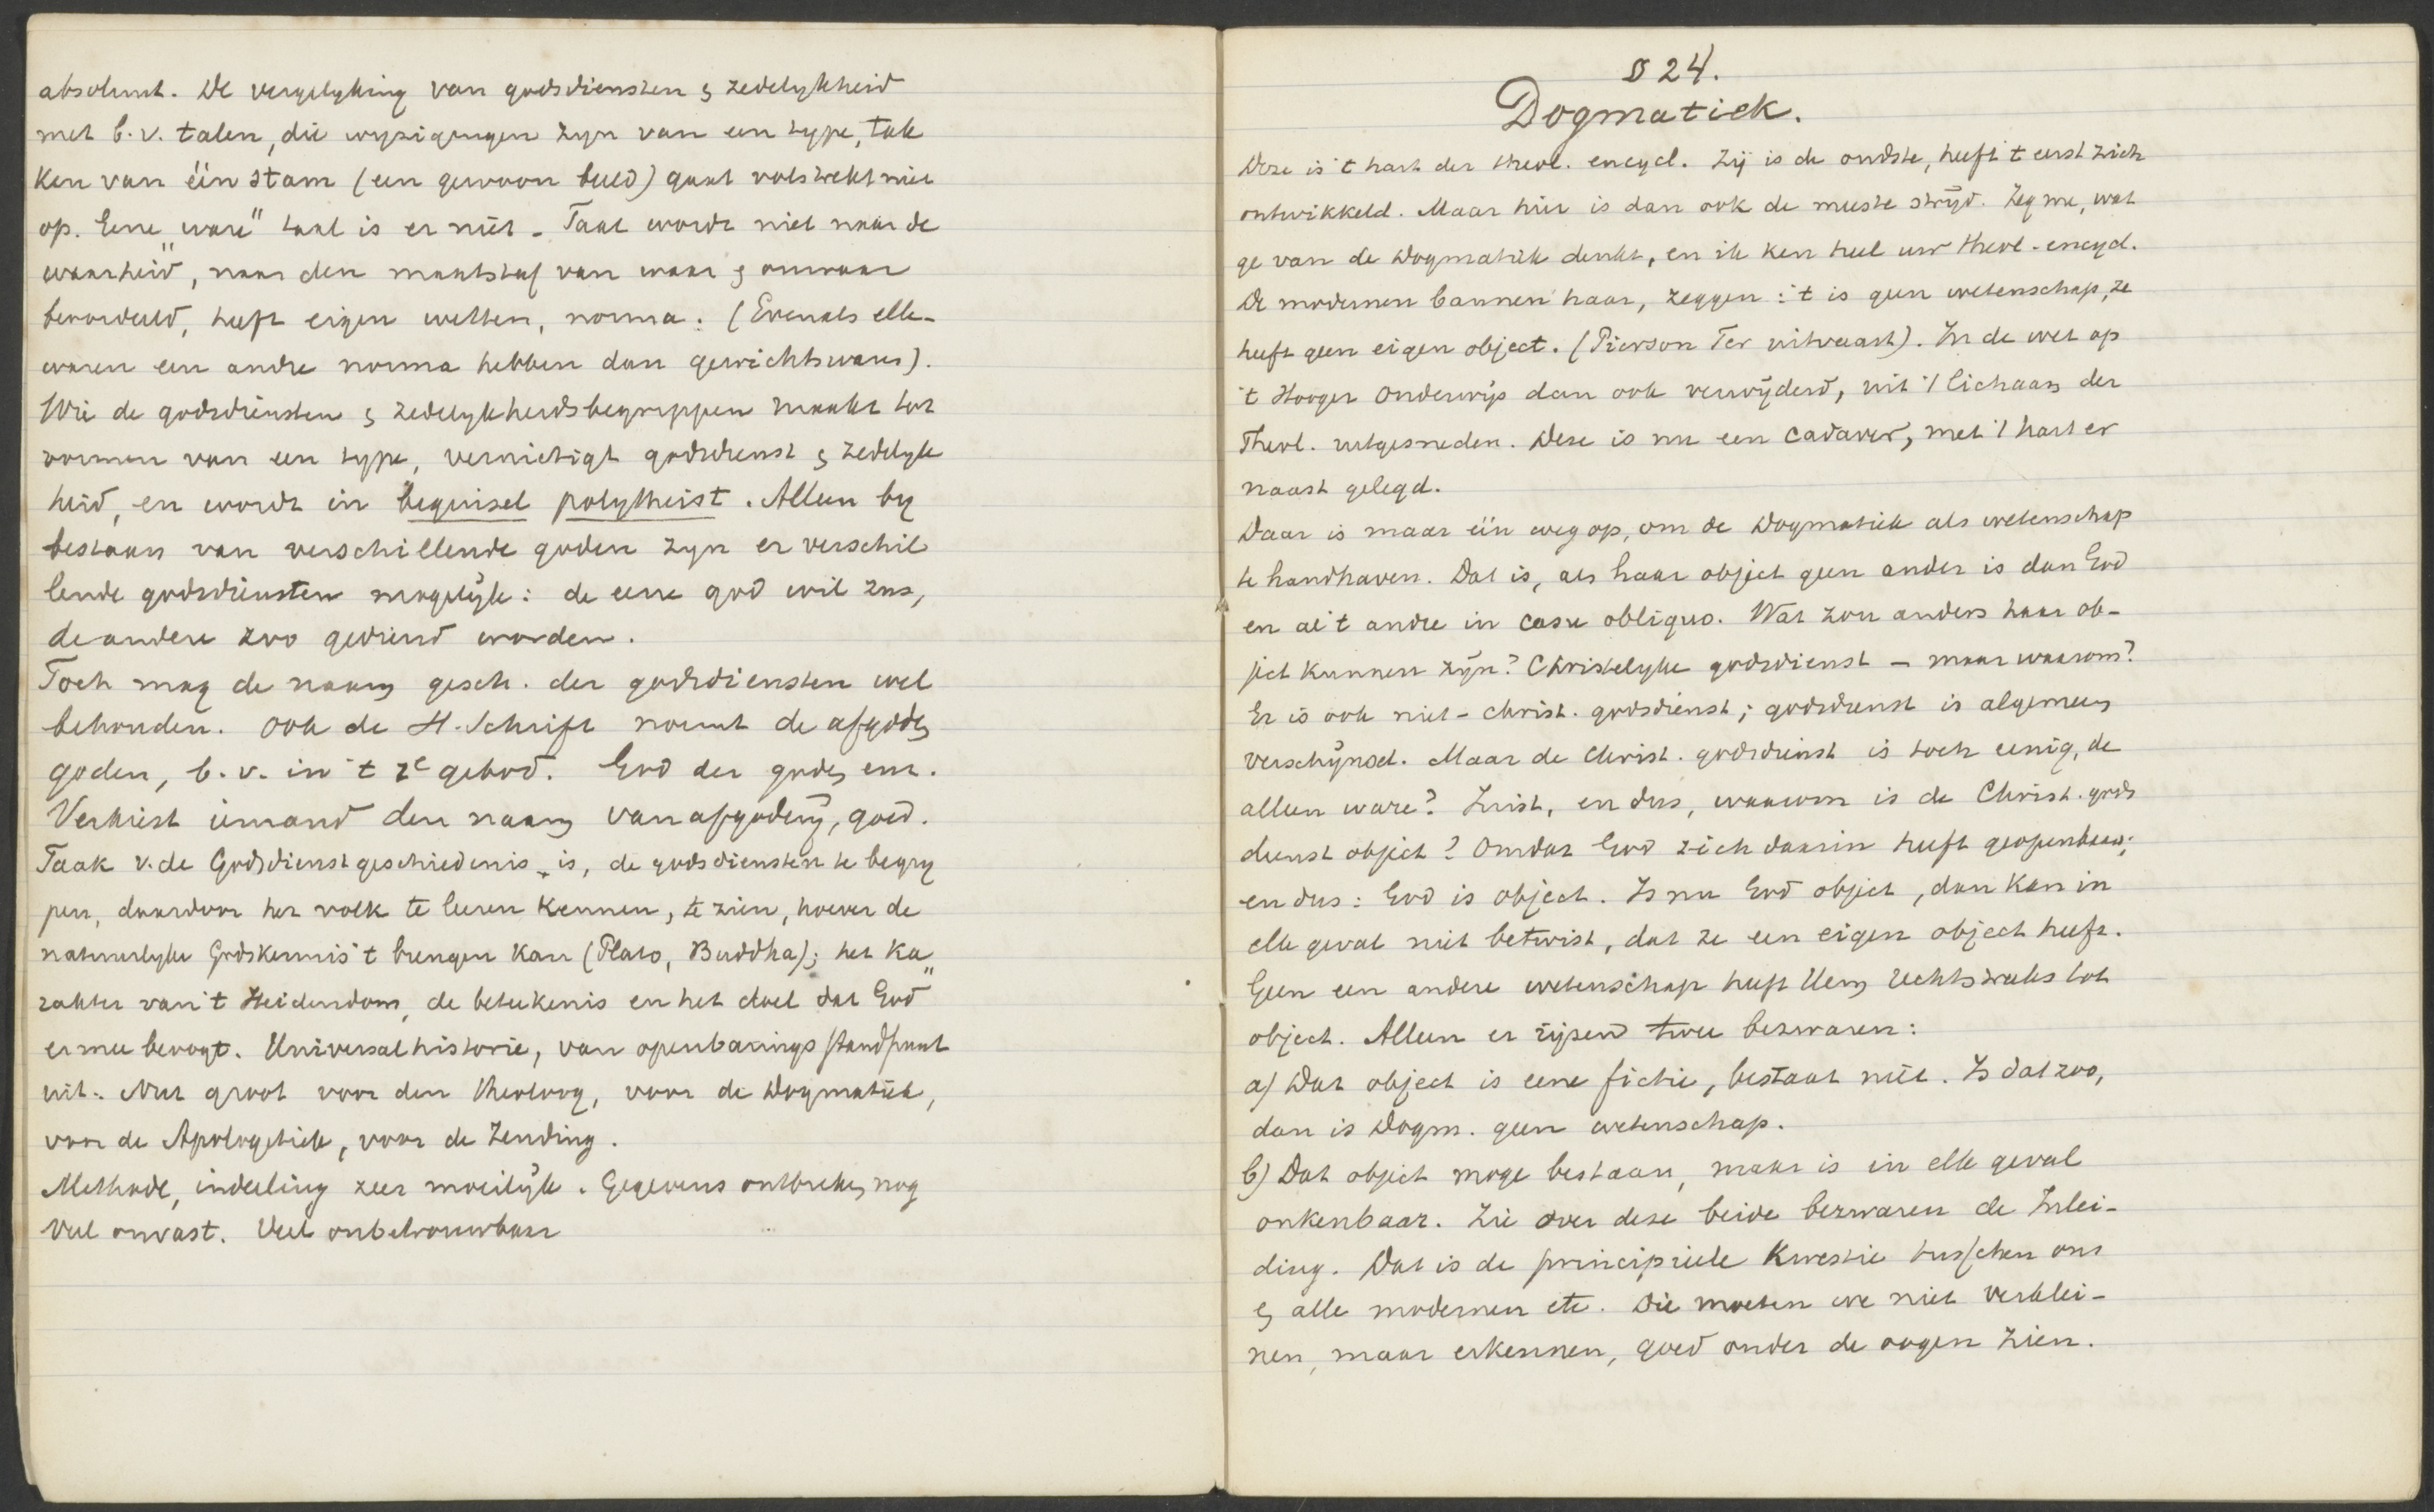 absoluut. De vergelyking van godsdiensten & zedelykheid
met b.v. talen, die wyzigingen zyn van een type, tak
ken van één stam (een gewoon beeld) gaat volstrekt niet
op. Eene „ware" taal is er niet – Taal wordt niet naar de
waarheid, naar den maatstaf van waar & onwaar
beoordeeld, heeft eigen wetten, norma. (Evenals elle-
waren een andre norma hebben dan gewichtswaren).
Wie de godsdiensten & zedelykheidsbegrippen maakt tot
vormen van een type, vernietigt godsdienst & zedelyk
heid, en wordt in beginsel polytheist. Alleen by
bestaan van verschillende goden zyn er verschil
lende godsdiensten mogelyk: de eene god wil zus,
de andere zoo gediend worden.
Toch mag de naam gesch. der godsdiensten wel
behouden. Ook de H. Schrift noemt de afgoden
goden, b.v. in 't 1e gebod. God der goden enz.
Verkiest iemand den naam van afgodery, goed.
Taak v. de Godsdienstgeschiedenis is, de godsdiensten te begry
pen, daardoor het volk te leeren kennen, te zien, hoever de
natuurlyke Godskennis 't brengen kan (Plato, Buddha); het ka„
rakter van 't Heidendom, de beteekenis en het doel dat God
ermee beoogt. Universalhistorie, van openbaringsstandpunt
uit. Nut groot voor den theoloog, voor de Dogmatiek,
voor de Apologetiek, voor de Zending.
Methode, indeeling zeer moeilyk. Gegevens ontbreken nog
Veel onvast. Veel onbetrouwbaar
§ 24.
Dogmatiek.
Deze is 't hart der theol. encycl. Zij is de oudste, heeft 't eerst zich
ontwikkeld. Maar hier is dan ook de meeste stryd. Zeg me, wat
ge van de Dogmatiek denkt, en ik ken heel uw theol. encycl.
De modernen bannen haar, zeggen: 't is geen wetenschap, ze
heeft geen eigen object. (Pierson Ter uitvaart). In de wet op
't Hooger Onderwijs dan ook verwijderd, uit 't lichaam der
Theol. uitgesneden. Deze is nu een cadaver, met 't hart er
naast gelegd.
Daar is maar één weg op, om de Dogmatiek als wetenschap
te handhaven. Dat is, als haar object geen ander is dan God
en al 't andre in casu obliquo. Wat zou anders haar ob-
ject kunnen zyn? Christelyke godsdienst – maar waarom?
Er is ook niet-christ. godsdienst; godsdienst is algemeen
verschynsel. Maar de Christ. godsdienst is toch eenig, de
alleen ware? Juist, en dus, waarom is de Christ. gods
dienst object? Omdat God zich daarin heeft geopenbaard;
en dus: God is object. Is nu God object, dan kan in
elk geval niet betwist, dat ze een eigen object heeft.
Geen een andere wetenschap heeft Hem rechtstreeks tot
object. Alleen er ryzen twee bezwaren:
a) Dat object is eene fictie, bestaat niet. Is dat zoo,
dan is Dogm. geen wetenschap.
b) Dat object moge bestaan, maar is in elk geval
onkenbaar. Zie over deze beide bezwaren de Inlei-
ding. Dat is de principieele kwestie tusschen ons
& alle modernen etc. Die moeten we niet verklei-
nen, maar erkennen, goed onder de oogen zien.